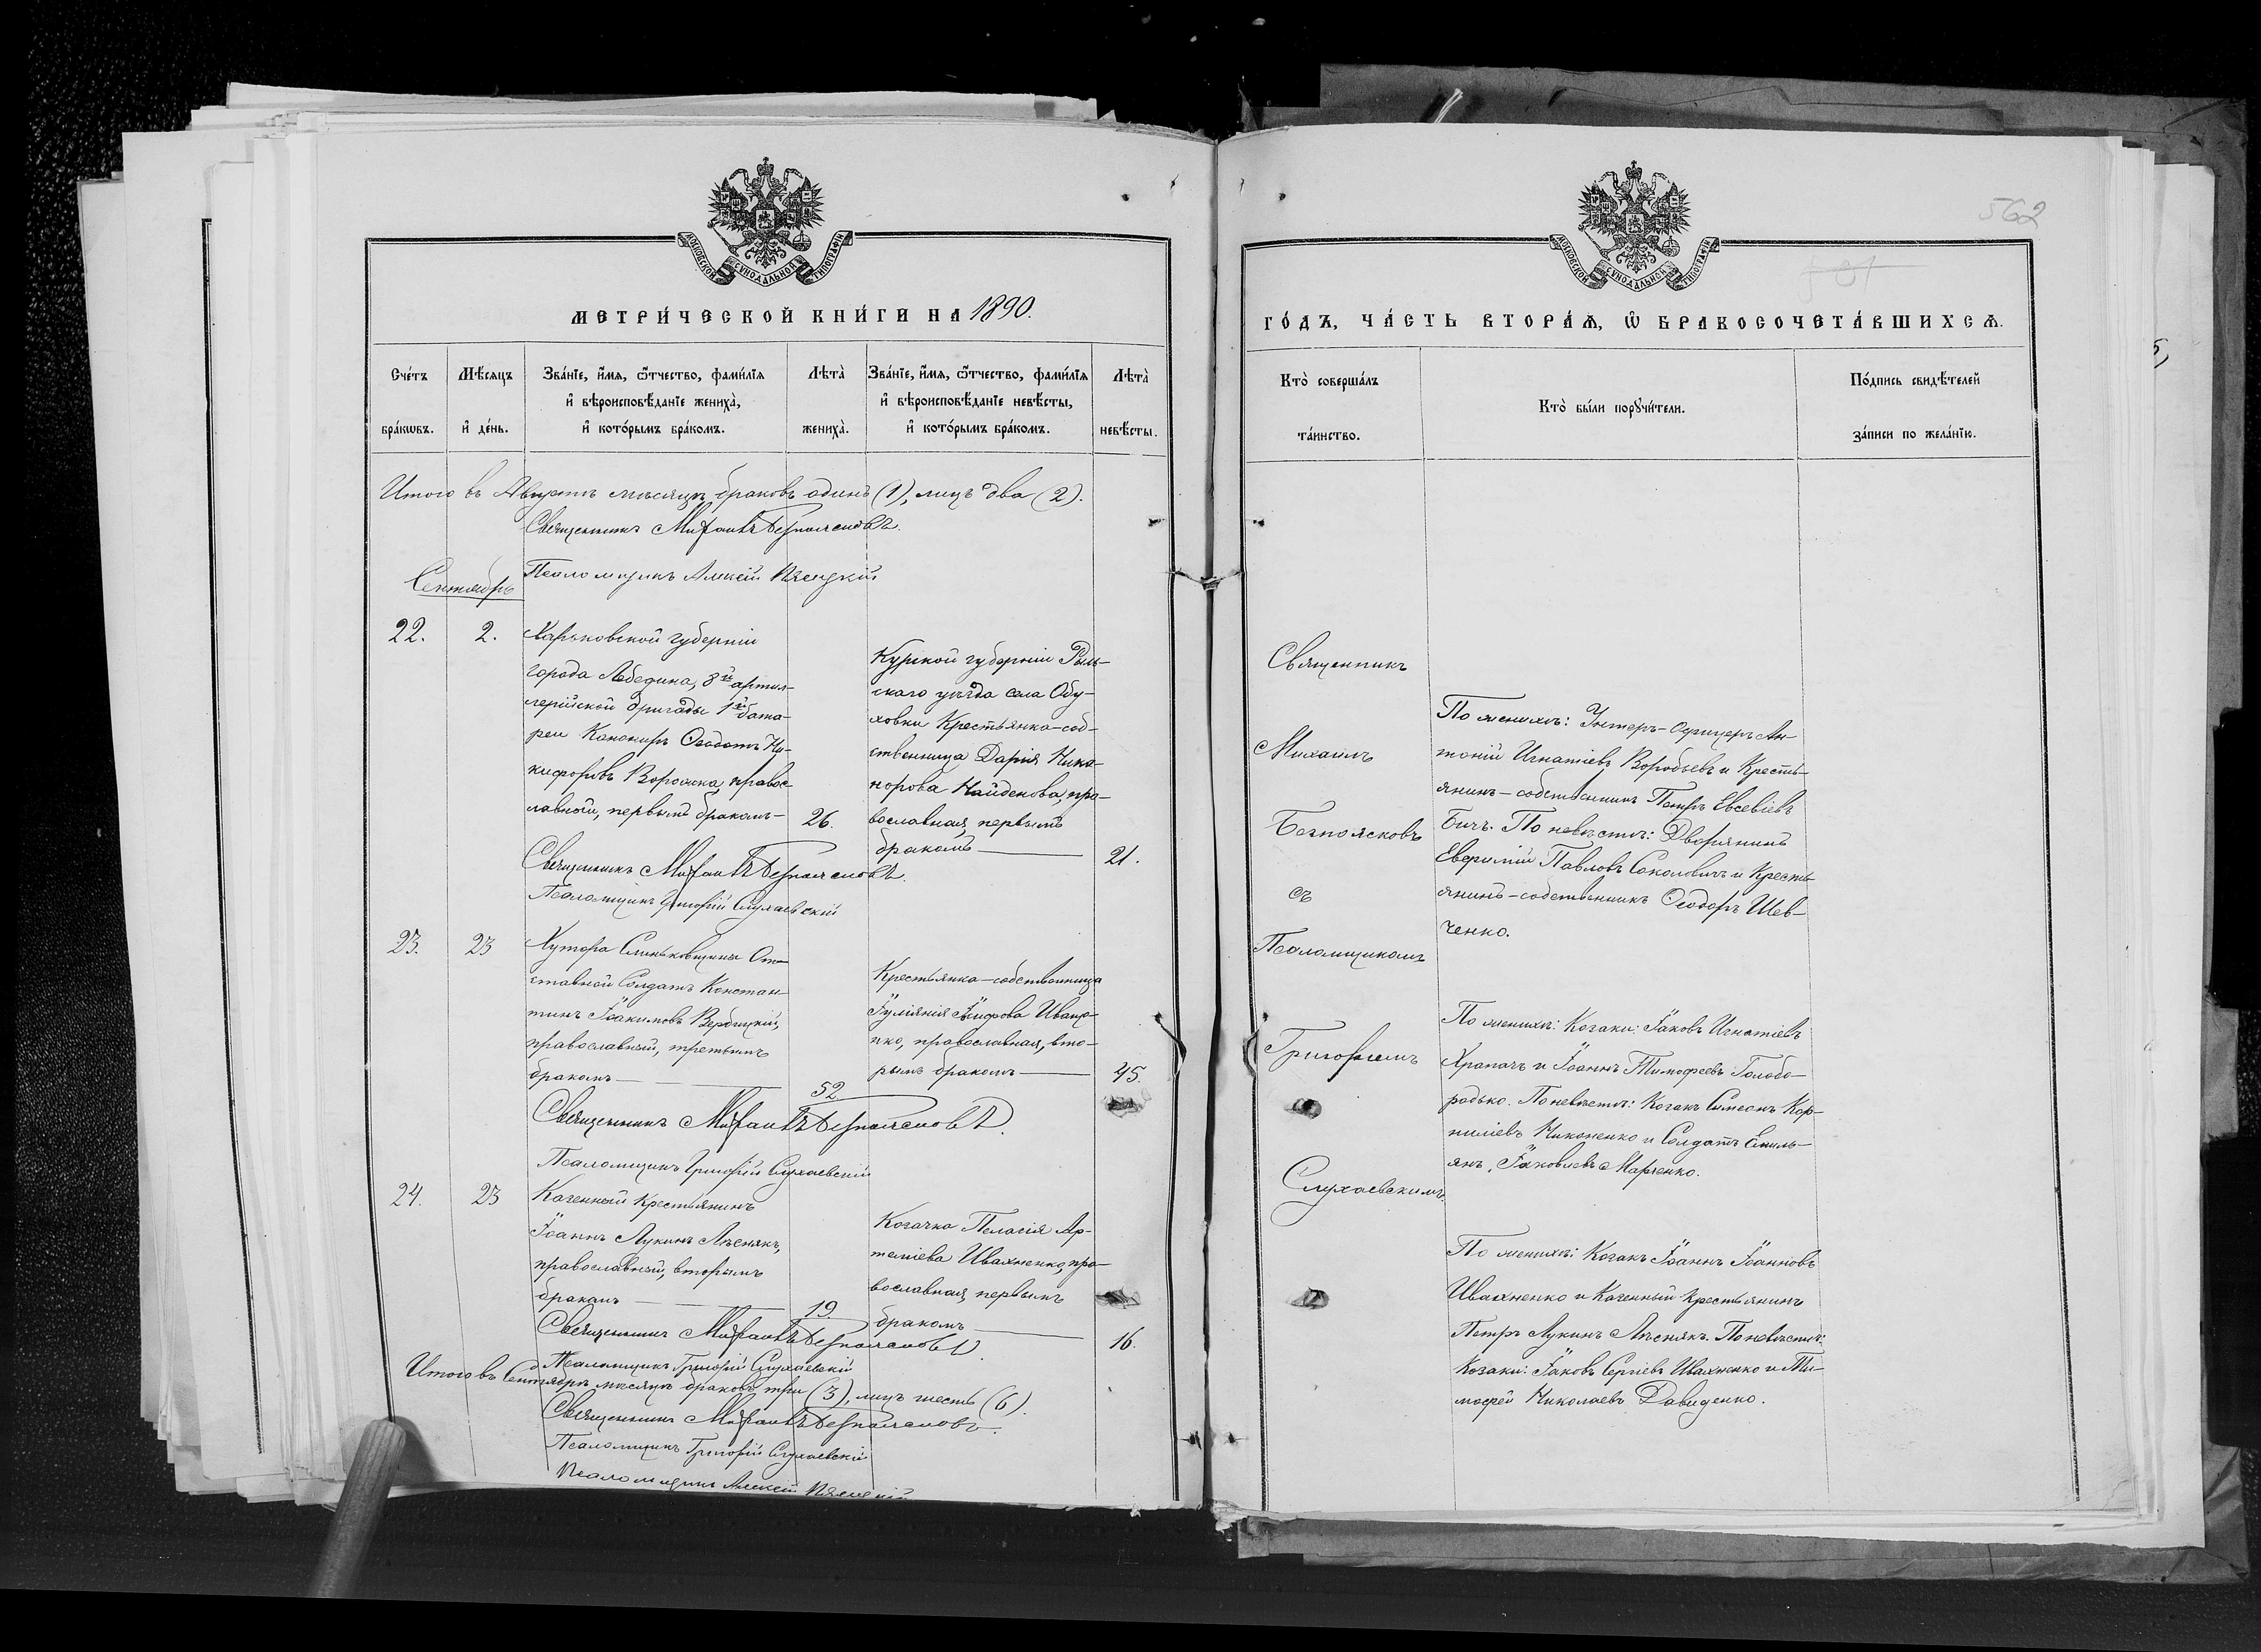 562
МОСКОВСКОЙ СѴНОДАЛЬНОЙ ТИПОГРАФІИ
МЕТРИ́ЧЕСКОЙ КНИ́ГИ НА 1890.
Сче́тъ бра́кѡвъ.
Мѣ́сяцъ и҆ де́нь.
Зва́нїе, и҆́мя, ѻ҆́тчество, фами́лїя
и҆ вѣроисповѣ́данїе жениха̀,
и҆ кото́рымъ бра́комъ.
Лѣта̀
жениха̀.
Зва́нїе, и҆́мя, ѻ҆́тчество, фами́лїя
и҆ вѣроисповѣ́данїе невѣ́сты,
и҆ кото́рымъ бра́комъ.
Лѣта̀
невѣ́сты.
Итого въ Августѣ мѣсяцѣ браковъ одинъ (1), лицъ два (2).
Священникъ Михаилъ Безпоясковъ
Псаломщикъ Алексій
Сентябрь
22.
2.
Харьковской губерніи
города Лебедина, 8й артил-
лерійской бригады 1й бата-
реи Канониръ Ѳеодотъ Ни-
кифоровъ Ворожка, правос-
лавный, первымъ бракомъ-
26.
Курской губерніи Рыль-
скаго уѣзда села Обу-
ховки Крестьянка-соб-
ственница Дарія Ника-
норова Найденова, пра-
вославная, первымъ
бракомъ
21.
Священникъ Михаилъ Безпоясковъ.
Псаломщикъ Григорій Слухаевскій
23.
23
Хутора Слиньковщины От-
ставной Солдатъ Констан-
тинъ Іоакимовъ Вербицкій,
православный, третьимъ
бракомъ
52.
Крестьянка-собственница
Іуліянія Іосифова Иваще-
нко, православная, вто-
рымъ бракомъ
45.
Священникъ Михаилъ Безпоясковъ.
Псаломщикъ Григорій Слухаевскій
24.
23
Казенный Крестьянинъ
Іоаннъ Лукинъ Лѣснякъ,
православный, вторымъ
бракомъ
19.
Козачка Пелагія Ар-
теміева Ивахненко, пра-
вославная, первымъ
бракомъ
16.
Священникъ Михаилъ Безпоясковъ
Псаломщикъ Григорій Слухаевскій
Итого въ Сентябрѣ мѣсяцѣ браковъ три (3), лицъ шесть (6).
Священникъ Михаилъ Безпоясковъ.
Псаломщикъ Григорій Слухаевскій
Псаломщикъ Алексій
МОСКОВСКОЙ СѴНОДАЛЬНОЙ ТИПОГРАФІИ
ГО́ДЪ, ЧА́СТЬ ВТОРА́Ѧ, Ѡ҆ БРАКОСОЧЕТА́ВШИХСѦ.
Кто̀ соверша́лъ
та́инство.
Кто̀ бы́ли порꙋчи́тели.
По́дпись свидѣ́телей
за́писи по жела́нїю.
Священникъ
Михаилъ
Безпоясковъ
съ
Псаломщикомъ
Григоріемъ
Слухаевскимъ.
По женихѣ: Унтеръ-Офицеръ Ан-
тоній Игнатіевъ Воробьевъ и Кресть-
янинъ-собственникъ Петръ Евсевіевъ
Бичъ. По невѣстѣ: Дворянинъ
Евѳимій Павловъ Соколовичъ и Кресть-
янинъ-собственникъ Ѳеодоръ Шев-
ченко.
По женихѣ: Козаки: Іаковъ Игнатіевъ
Храпачъ и Іоаннъ Тимофеевъ Голобо-
родько. По невѣстѣ: Козакъ Симеонъ Кор-
ниліевъ Никоненко и Солдатъ Емиль-
янъ Іаковлевъ Марченко.
По женихѣ: Козакъ Іоаннъ Іоанновъ
Ивахненко и Казенный крестьянинъ
Петръ Лукинъ Лѣснякъ. По невѣстѣ:
Козаки: Іаковъ Сергіевъ Ивахненко и Ти-
мофей Николаевъ Давиденко.